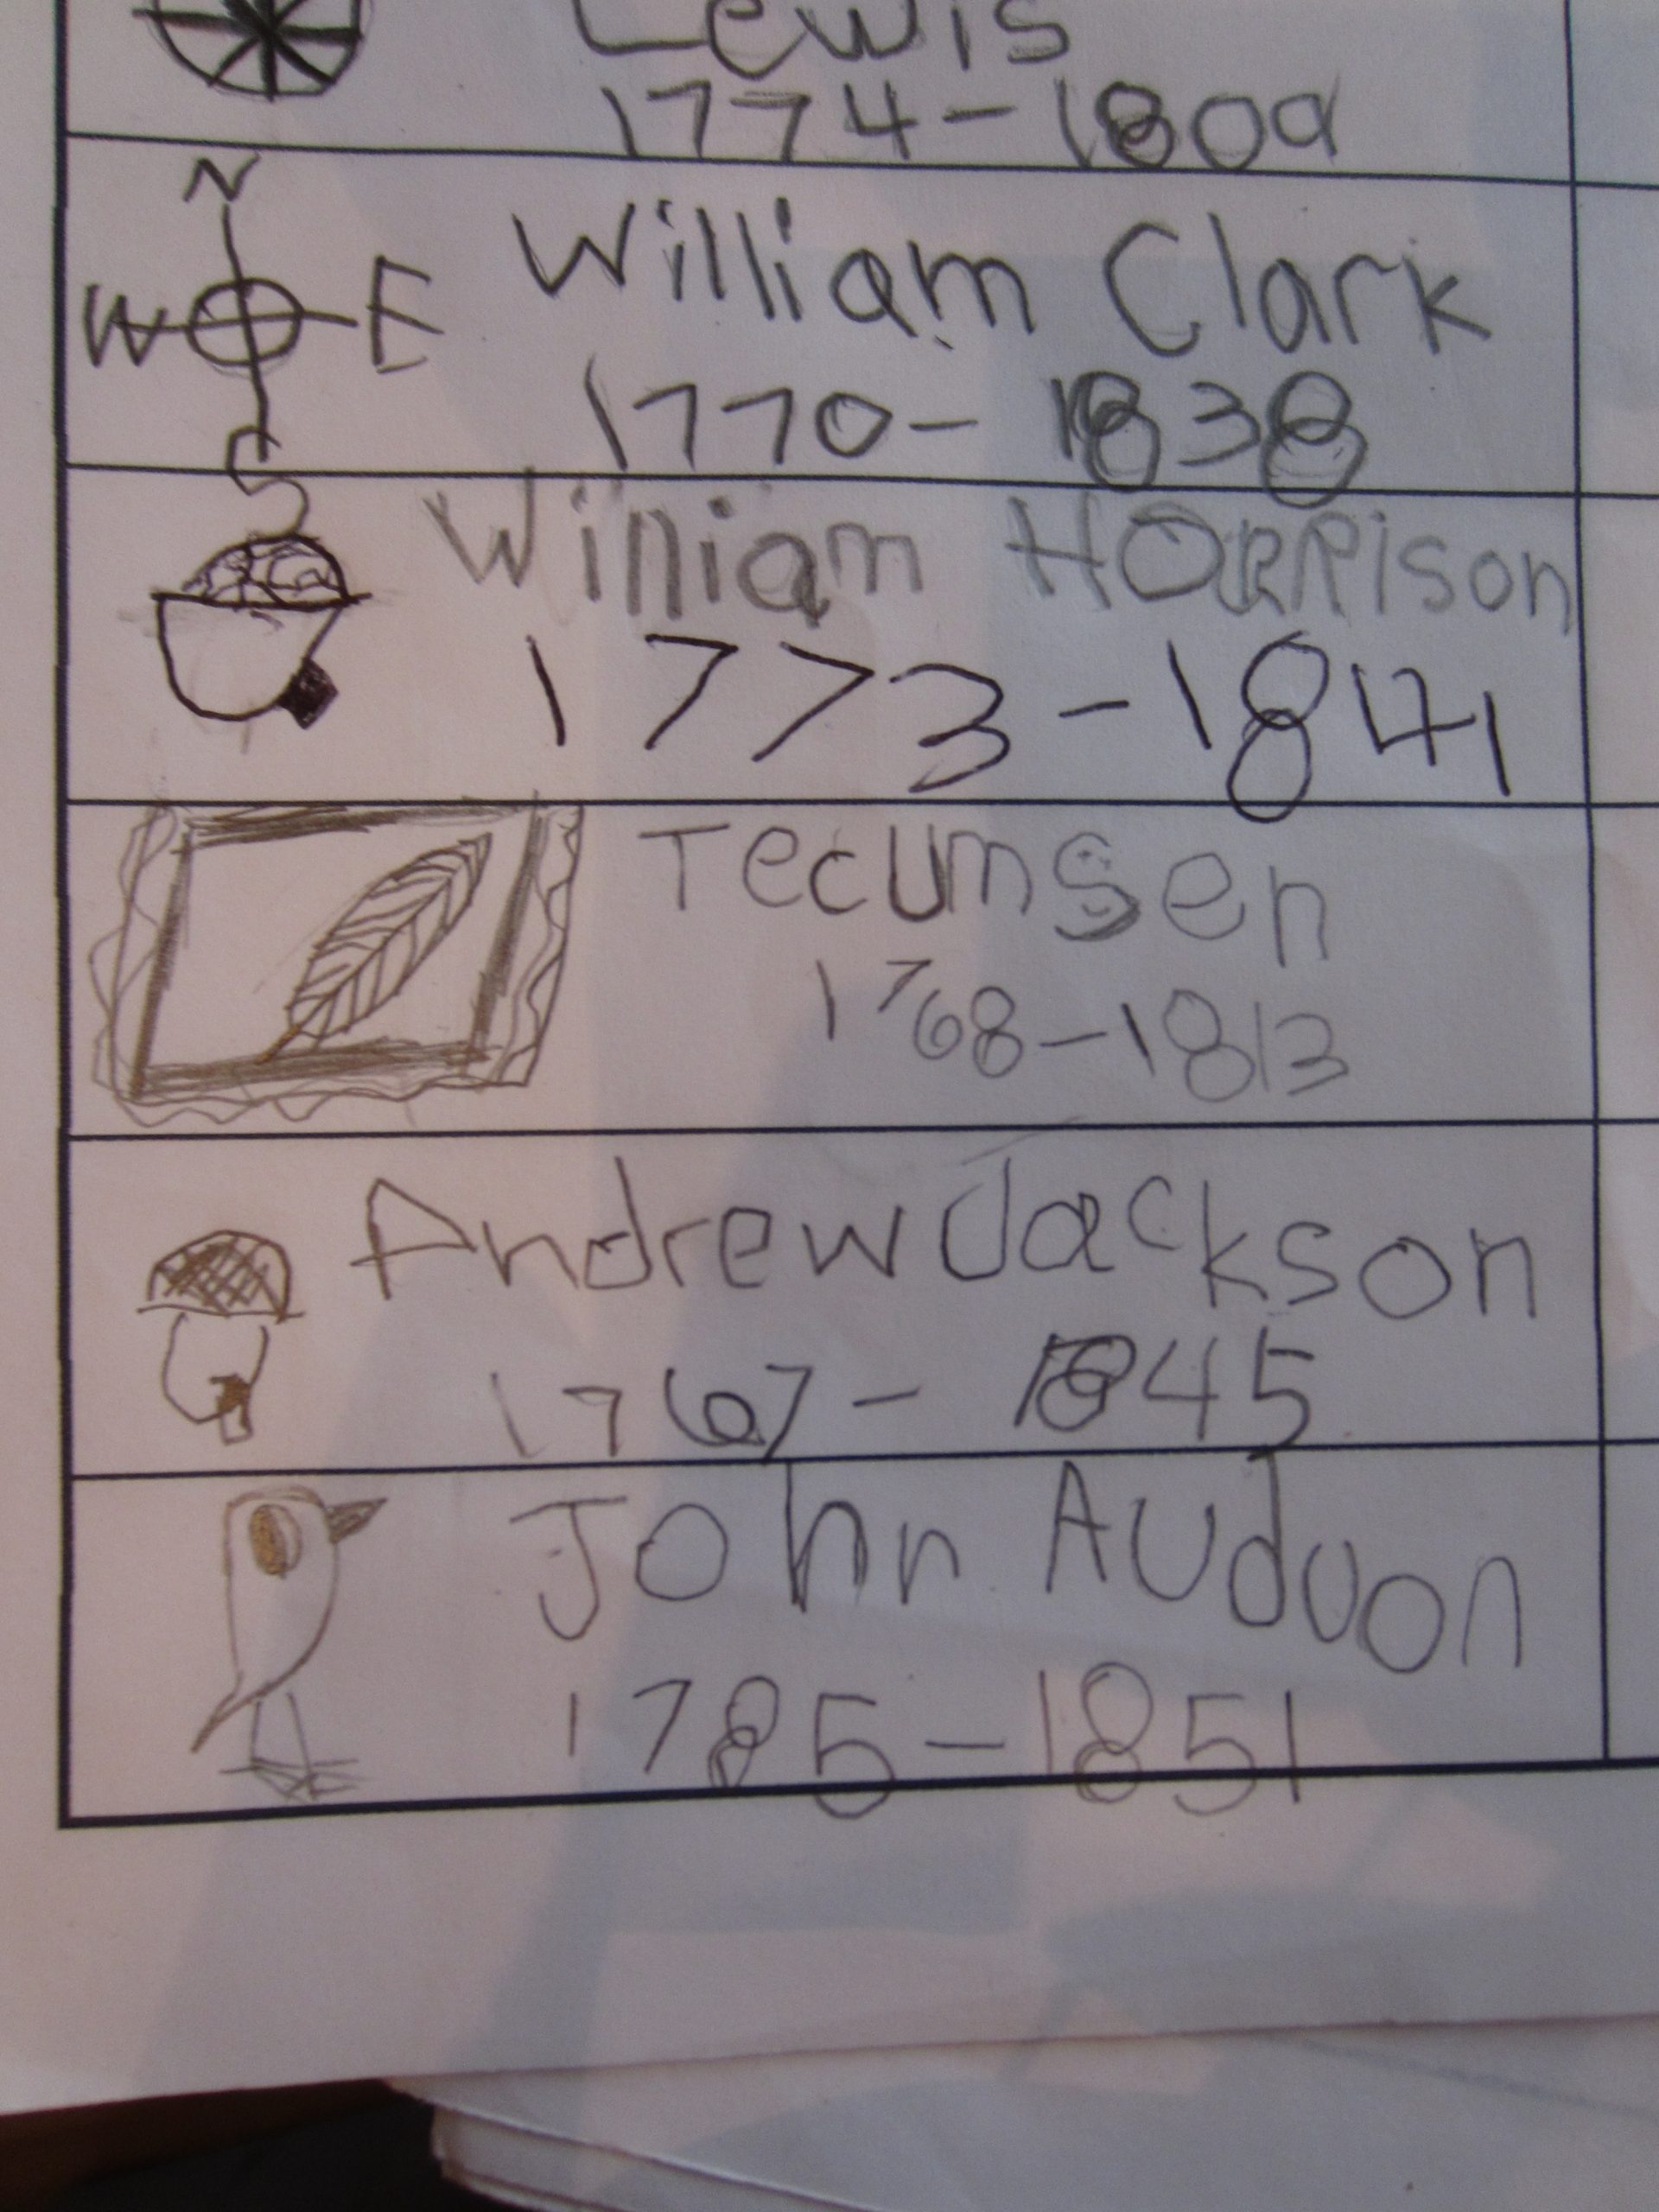 Lewis
1774-1809
N
W E
S
William Clark
1770-1838
William HaRRison
1773-1841
Tecumseh
1768-1813
Andrew Jackson
1767-1845
John Auduon
1785-1851